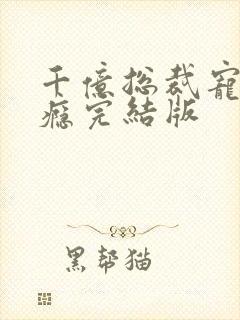 千億总裁寵
癮完結版
黑帮猫